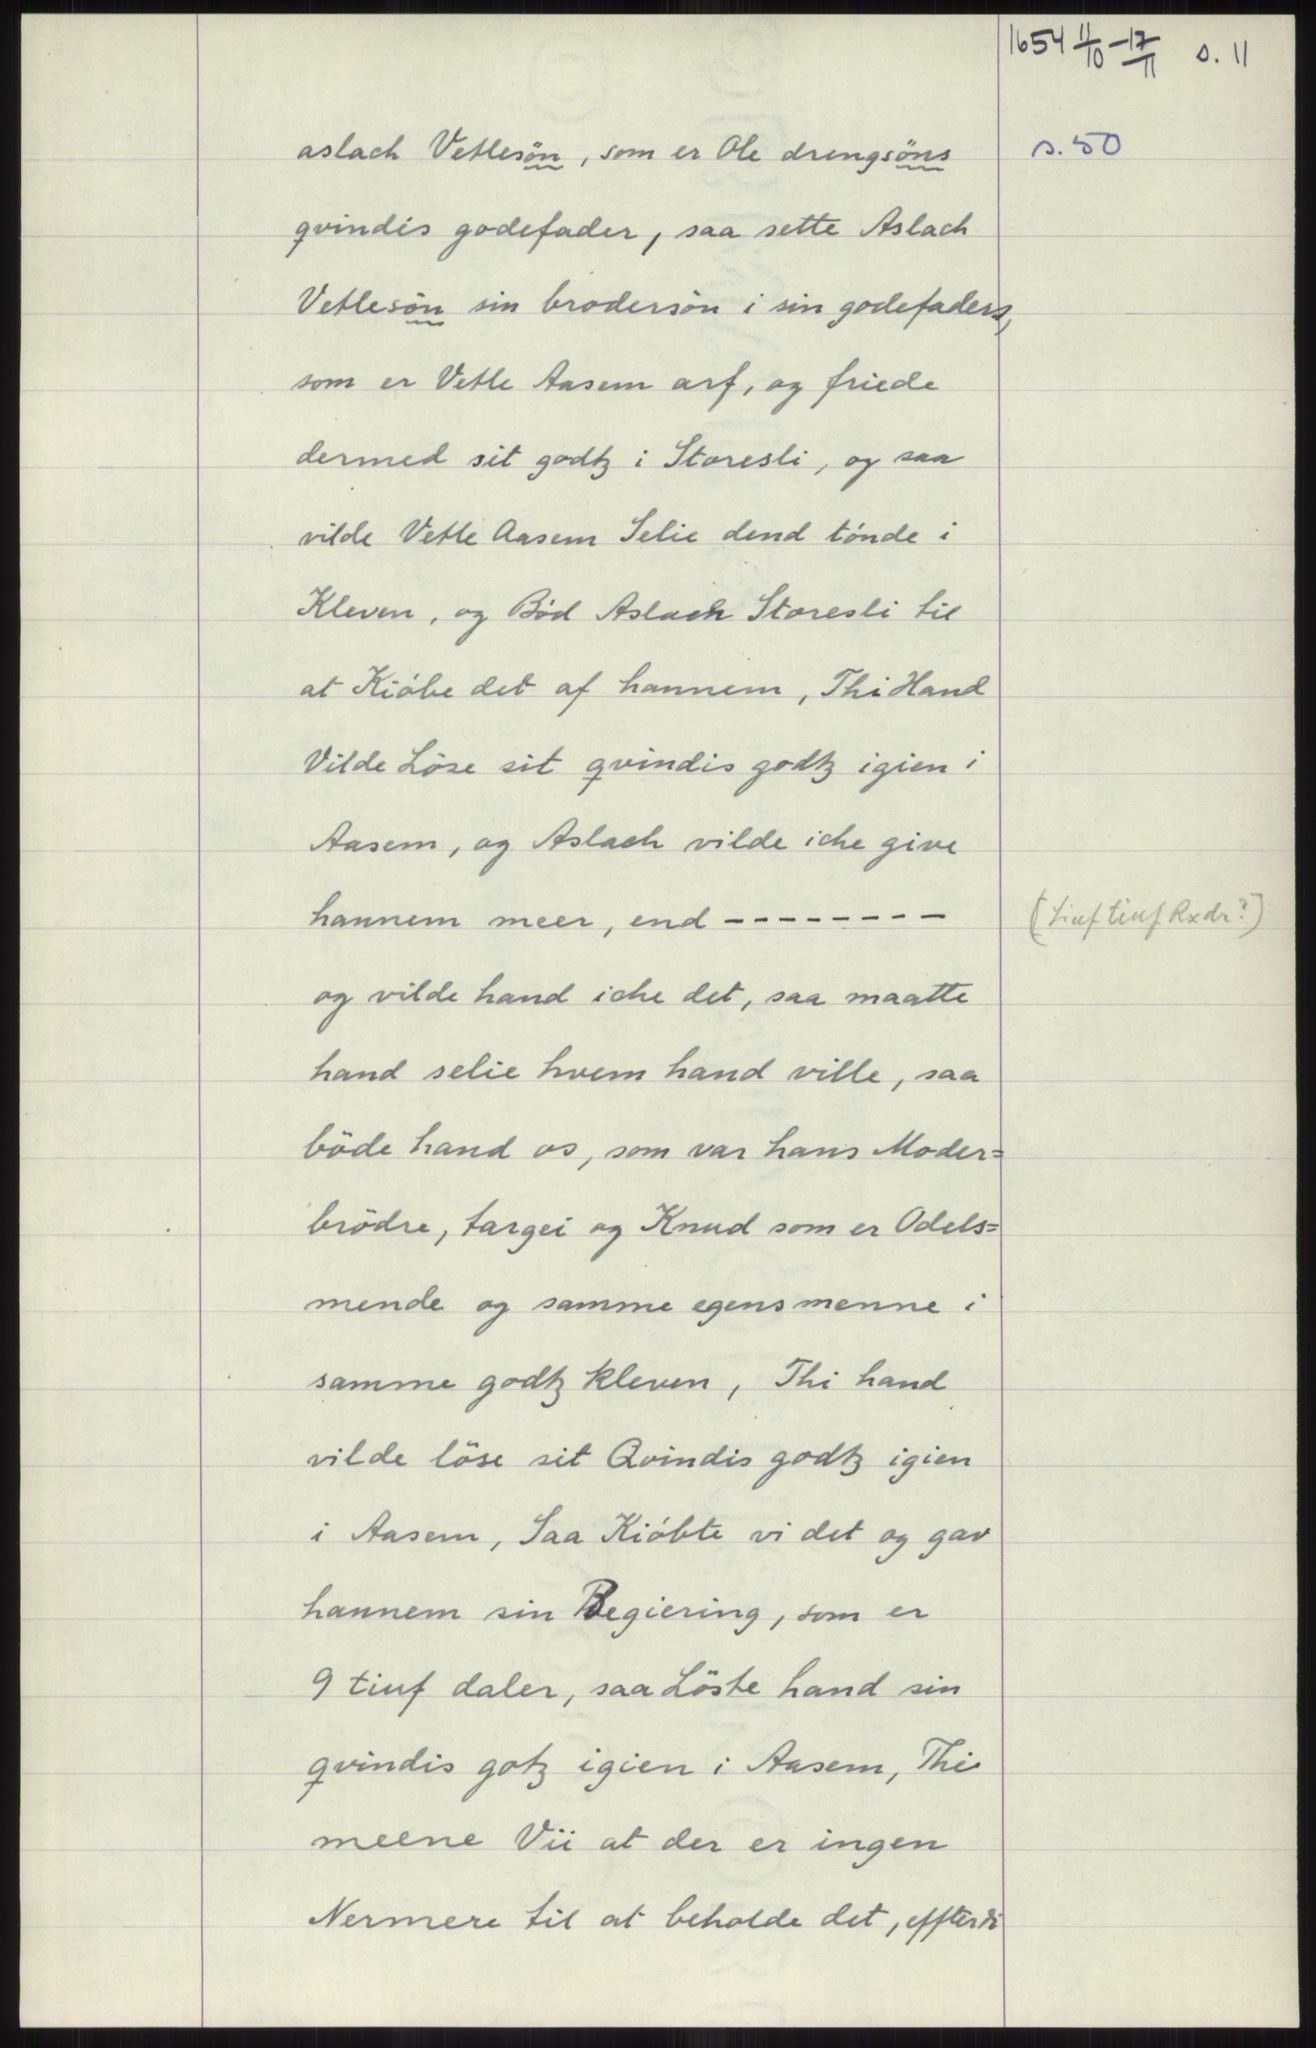 1654 11/10 - 17/11 s. 11
aslach Vetlesön, som er Ole drengsöns
s. 50
qvindis godefader, saa sette Aslach
Vetlesön sin brodersön i sin godefaders,
som er Vetle Aasem arf, og friede
dermed sit godtz i Storesli, og saa
vilde Vetle Aasem Selie dend tónde i
Kleven, og Bód Aslach Storesli til
at Kióbe det af hannem, Thi Hand
Vilde Löse sit qvindis godtz igien i
Aasem, og Aslach vilde iche give
hannem meer, end --------
(tiuf Rxdr?)
og vilde hand iche det, saa maatte
hand selie hvem hand ville, saa
böde hand os, som var hans Moder=
brödre, targei og Knud som er Odels=
mende og samme egensmenne i
samme godtz kleven, Thi hand
vilde löse sit Qvindis godtz igien
i Aasem, Saa Kióbte vi det og gav
hannem sin Begiering, som er
9 tiuf daler, saa Löste hand sin
qvindis gotz igien i Aasem, Thi
meene Vii at der er ingen
Nermere til at beholde det, effterdi